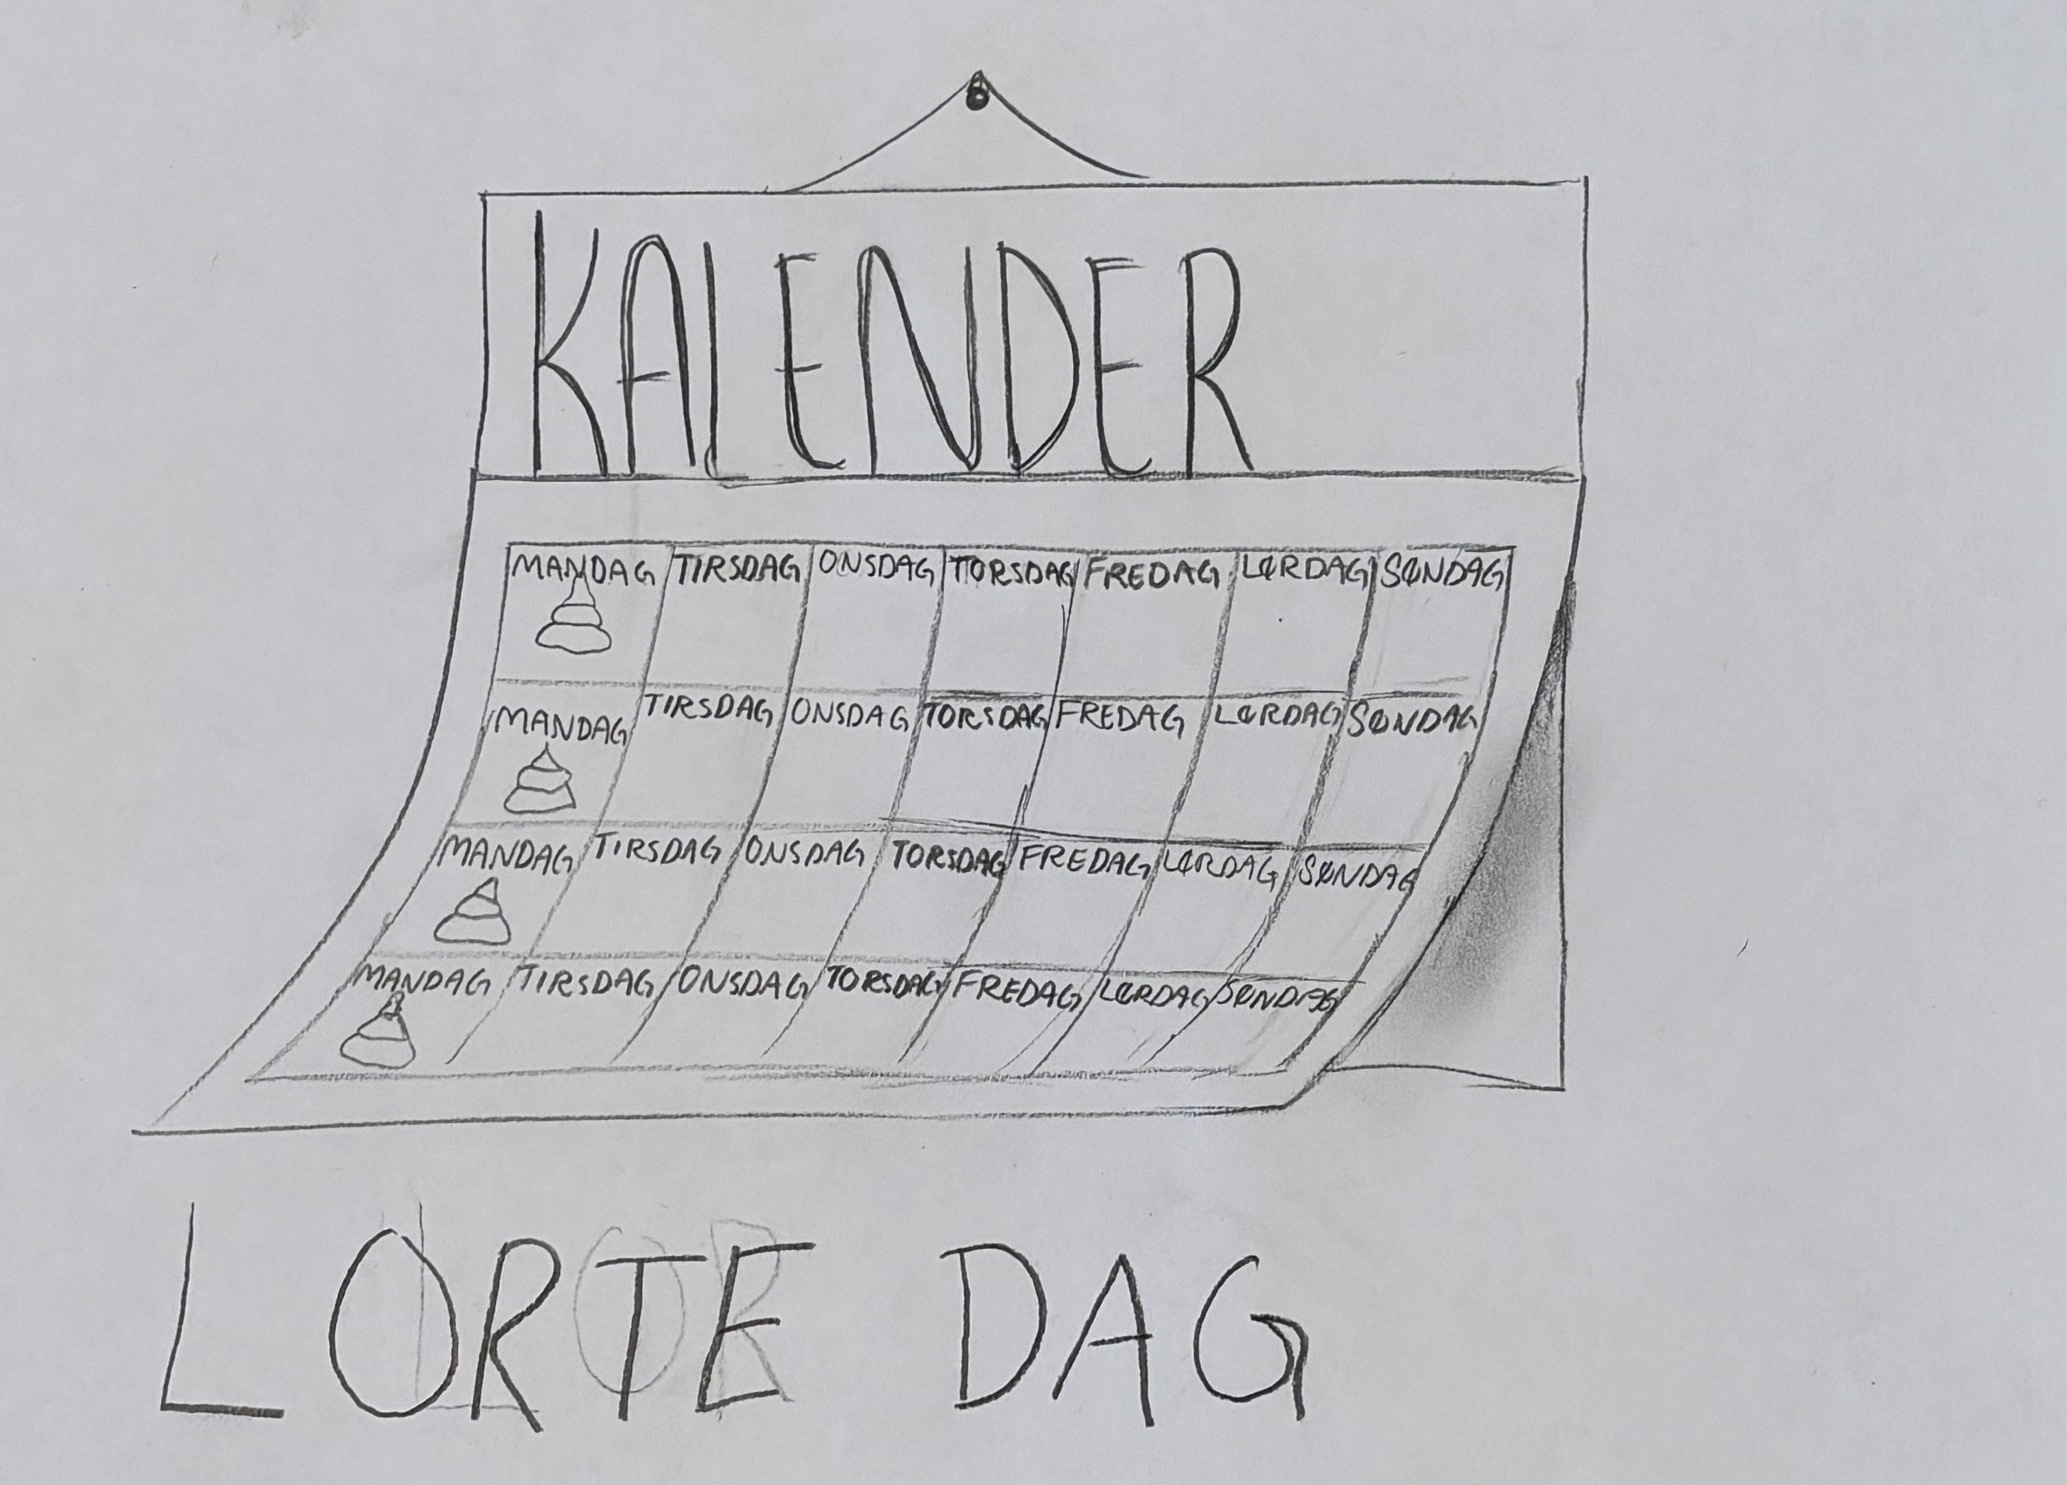 KALENDER
MANDAG TIRSDAG ONSDAG TORSDAG FREDAG LØRDAG SØNDAG
MANDAG TIRSDAG ONSDAG TORSDAG FREDAG LØRDAG SØNDAG
MANDAG TIRSDAG ONSDAG TORSDAG FREDAG LØRDAG SØNDAG
MANDAG TIRSDAG ONSDAG TORSDAG FREDAG LØRDAG SØNDAG
LORTE DAG